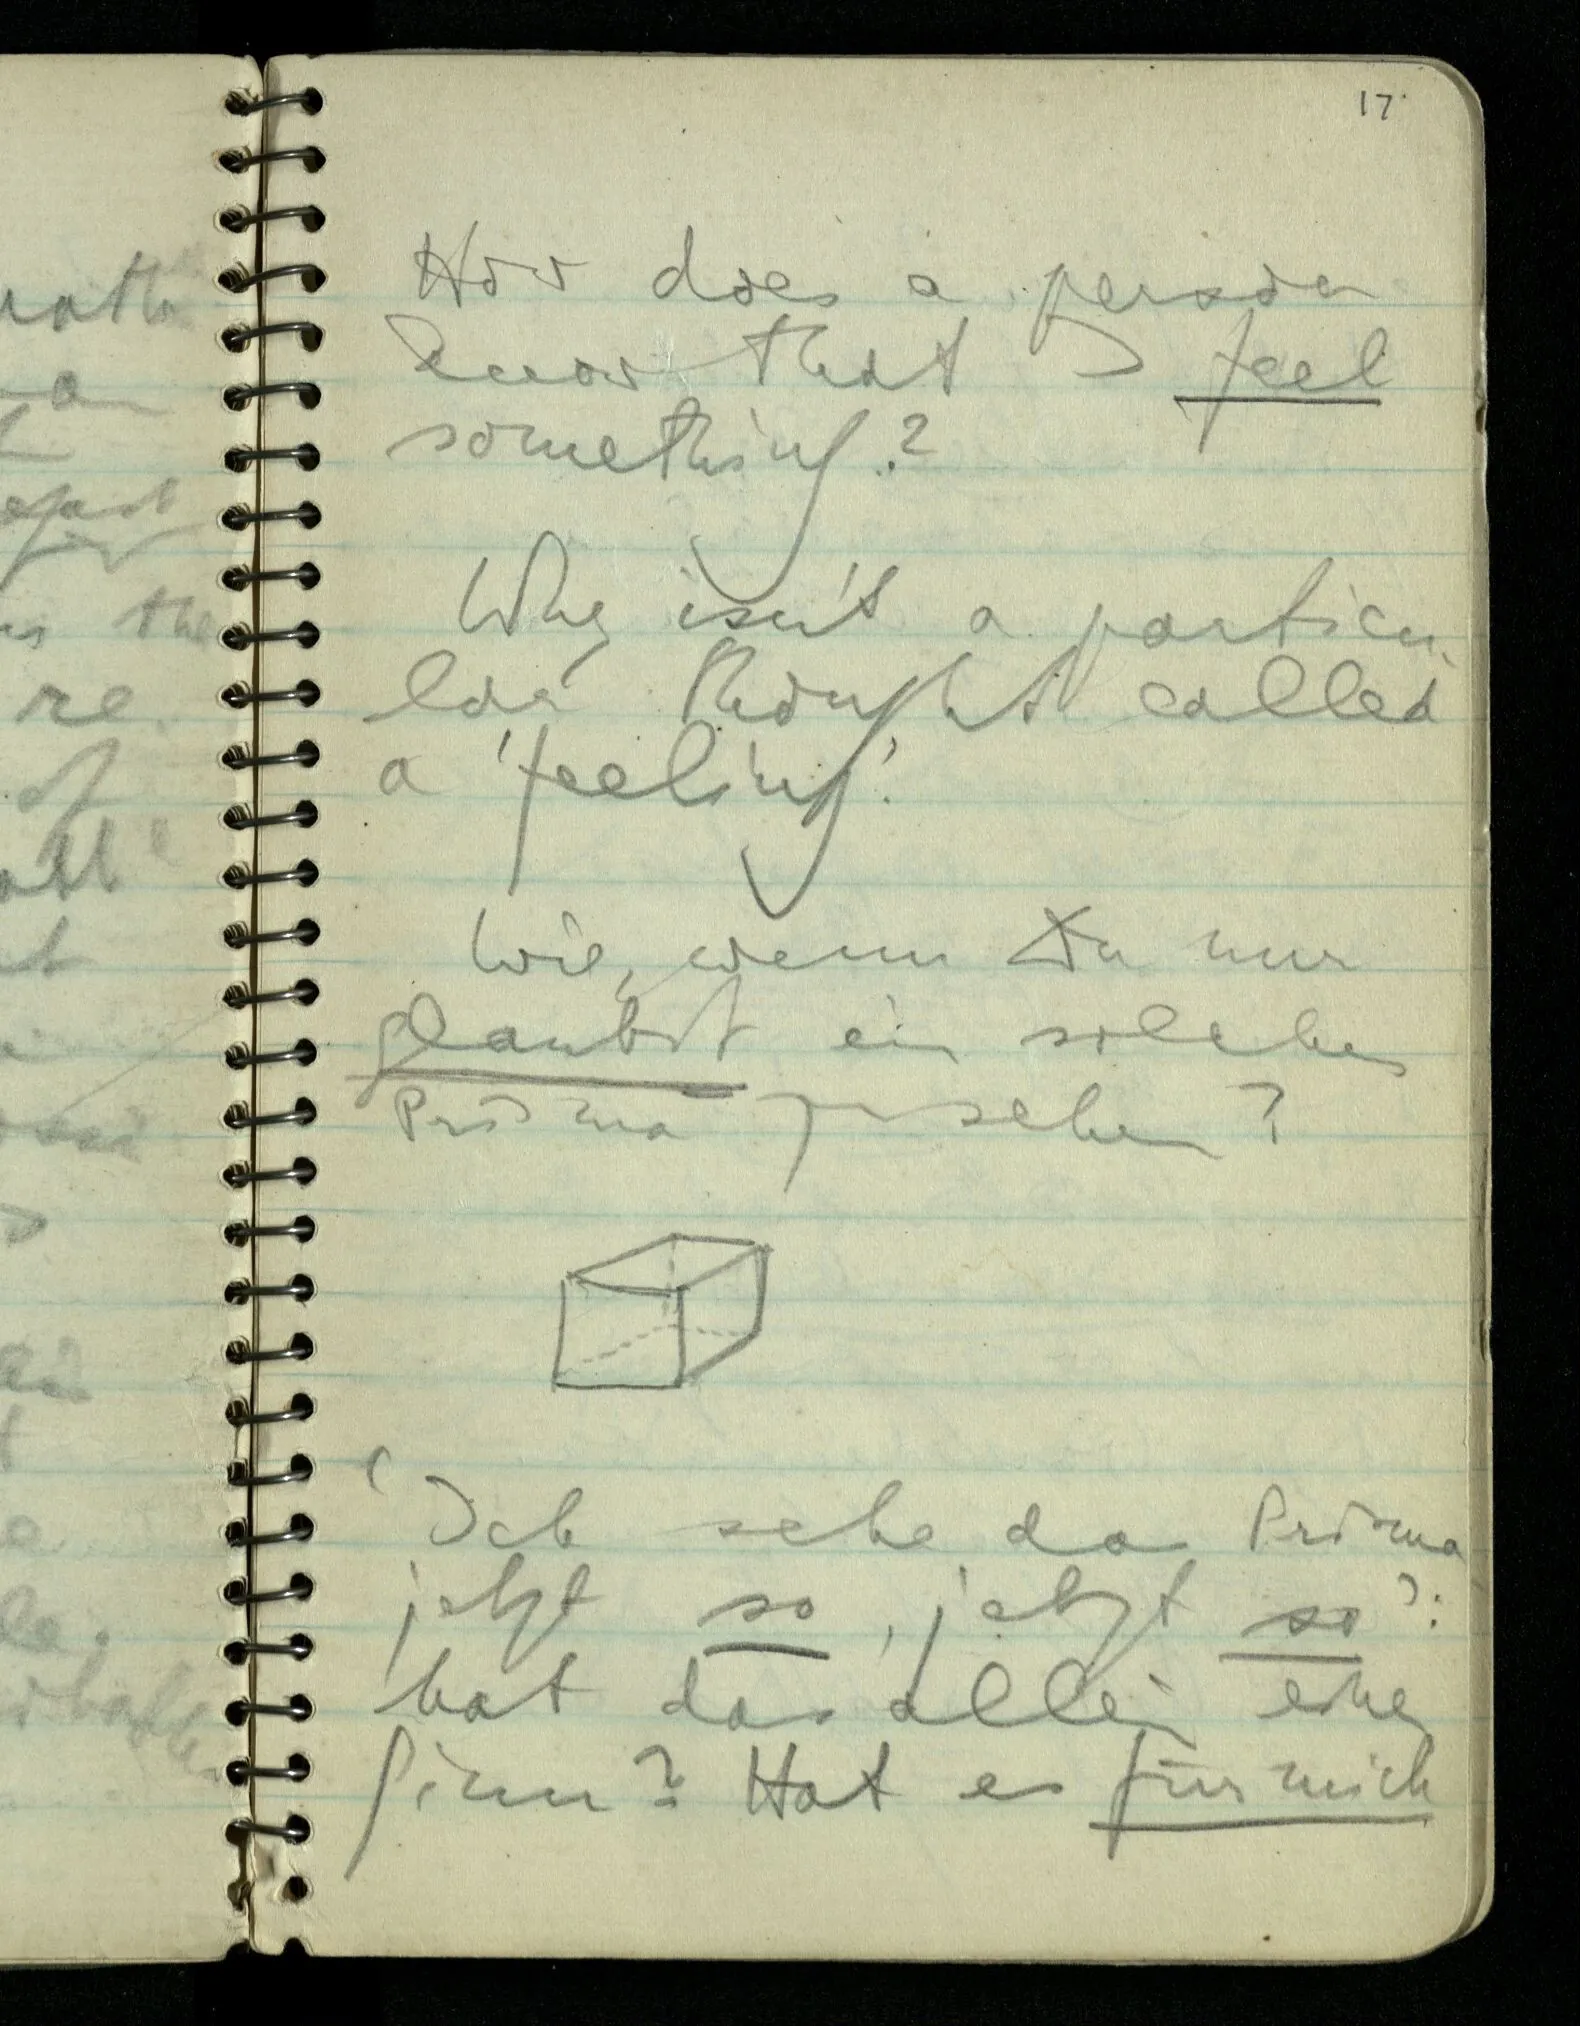 17
How does a person
know that I feel
something?
Why isn't a particu-
lar thought called
a 'feeling'.
Wie, wenn Du nur
glaubst ein solches
Prisma zu sehen?
'Ich sehe das Prisma
jetzt so, jetzt so':
hat das allein einen
Sinn? Hat es für mich
the
re.
of